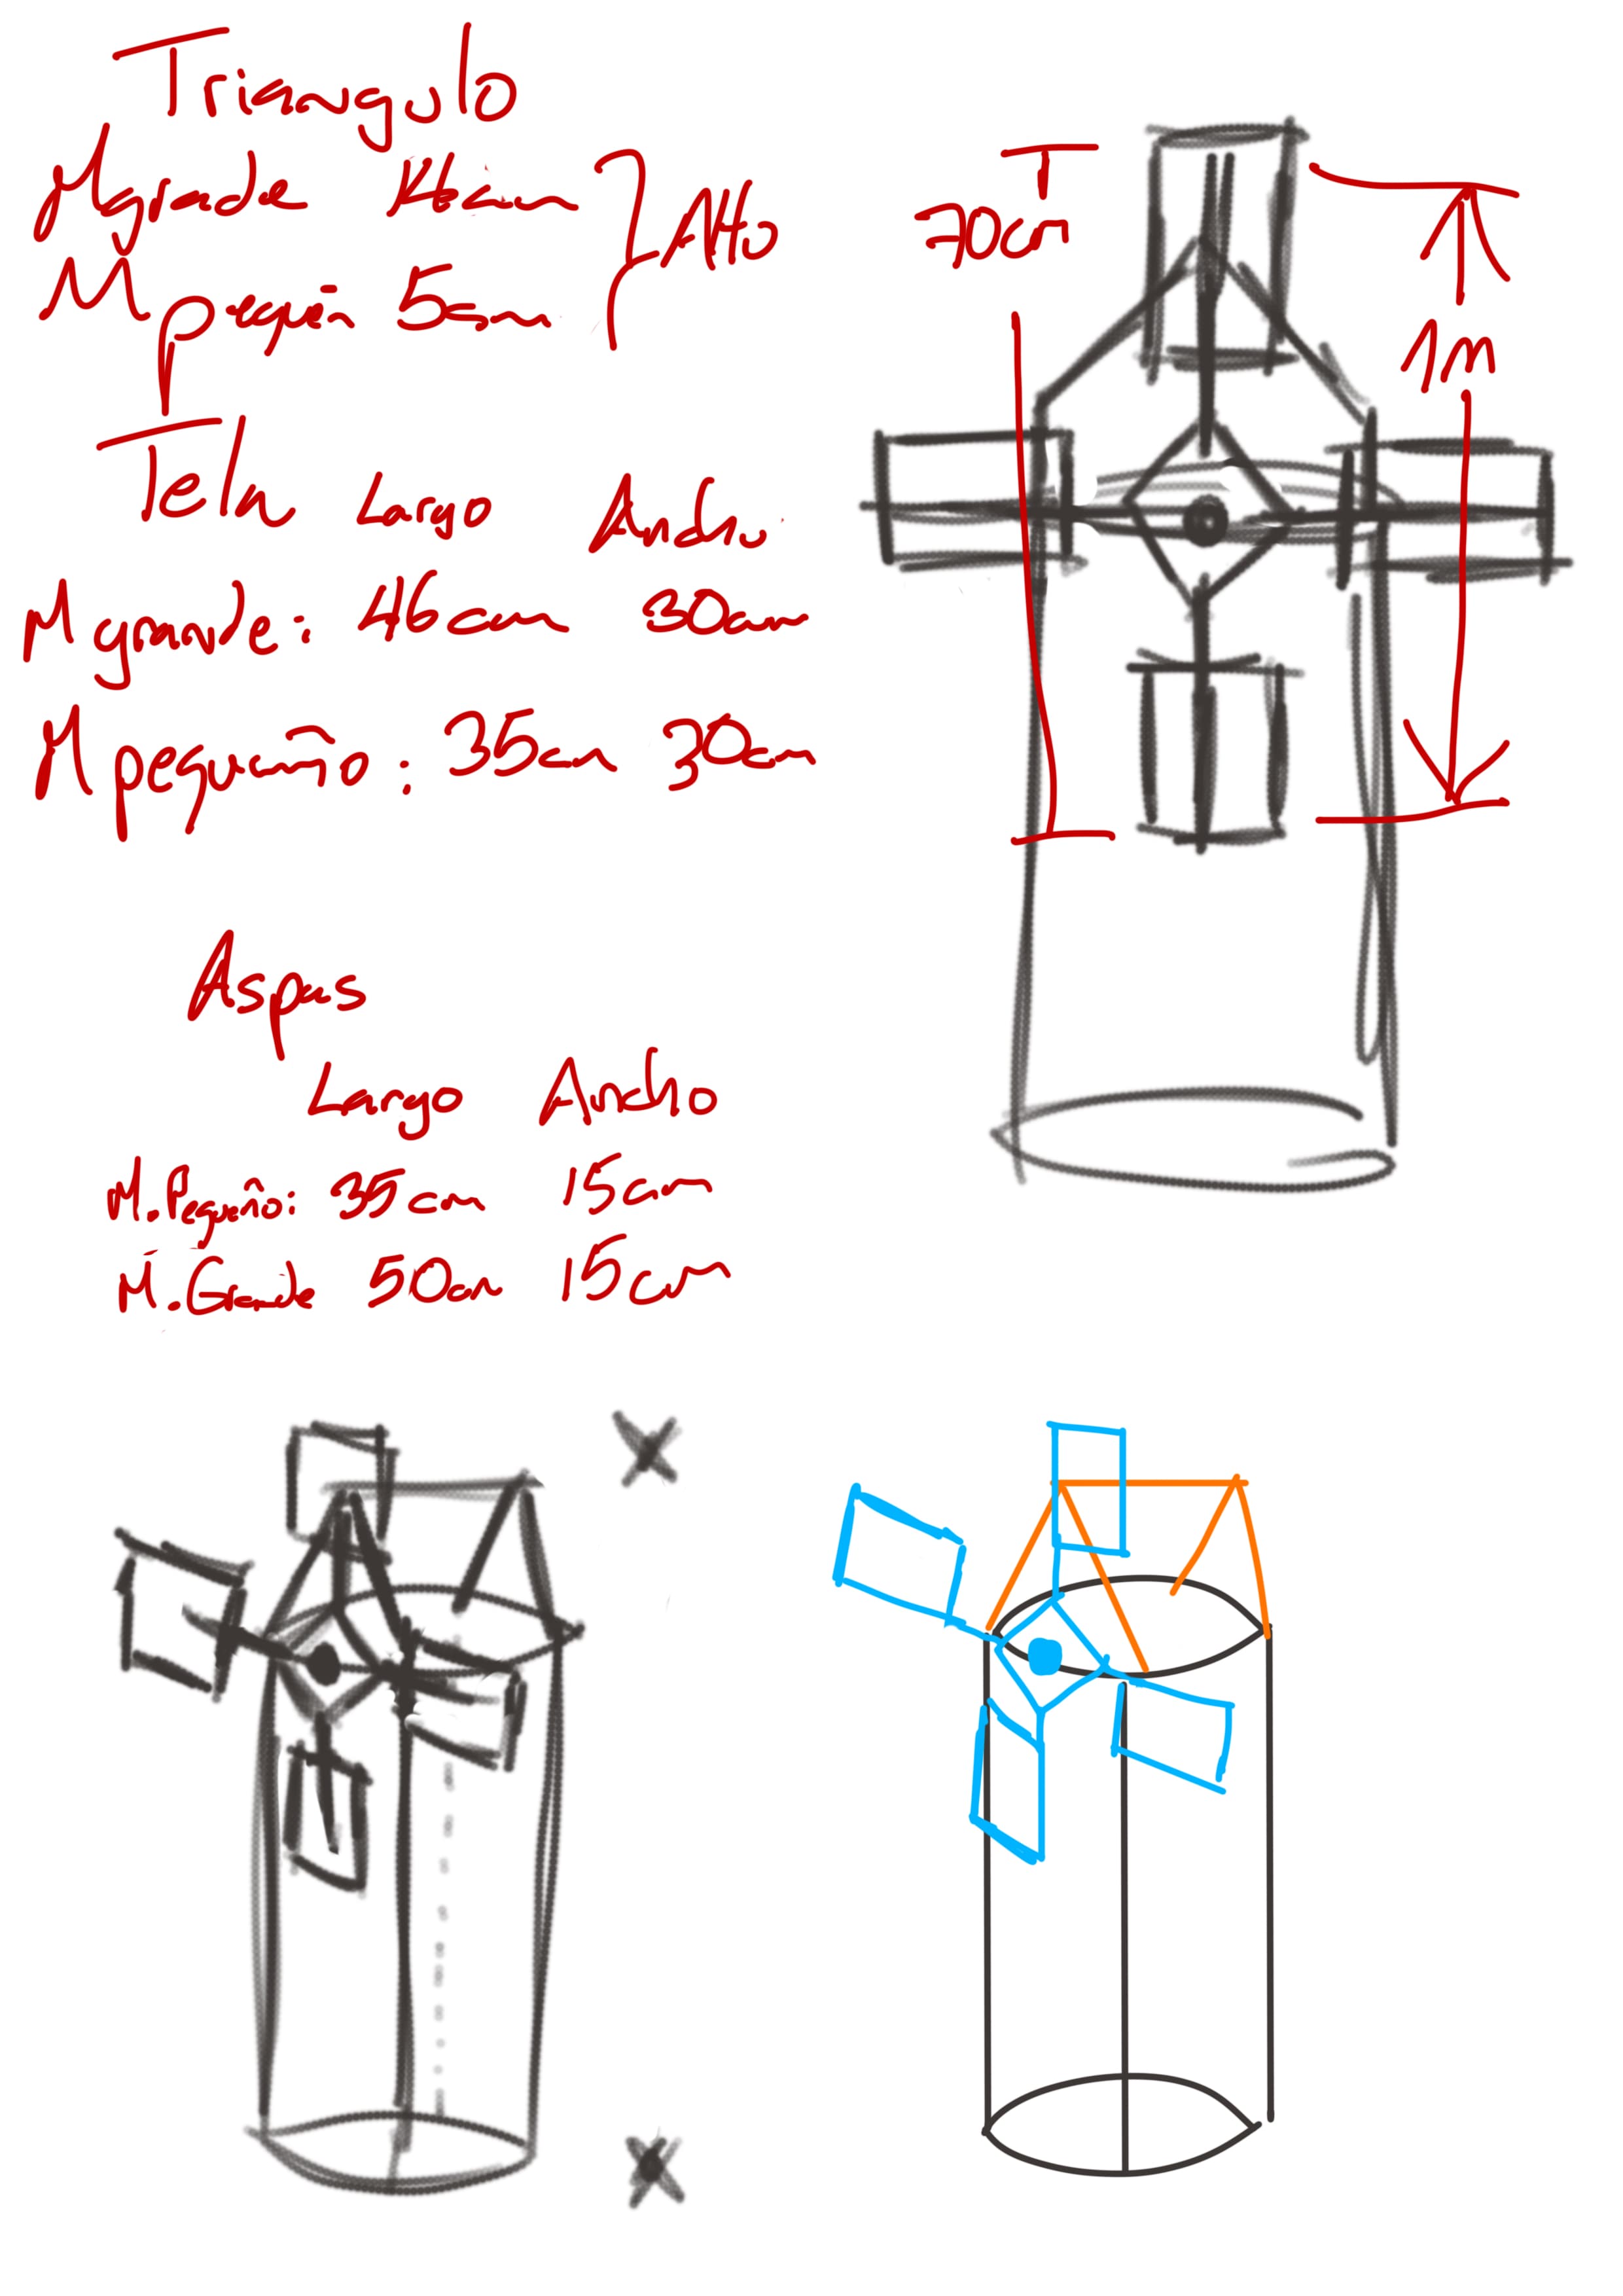 Triangulo
M grade
M pequeñ 5cm
Alto
70cm
1m
Tela Largo Ancho
M grande: 46cm 30cm
M pequeño: 35cm 30cm
Aspas
Largo Ancho
M. Pequeño: 35cm 15cm
M. Grande 50cm 15cm